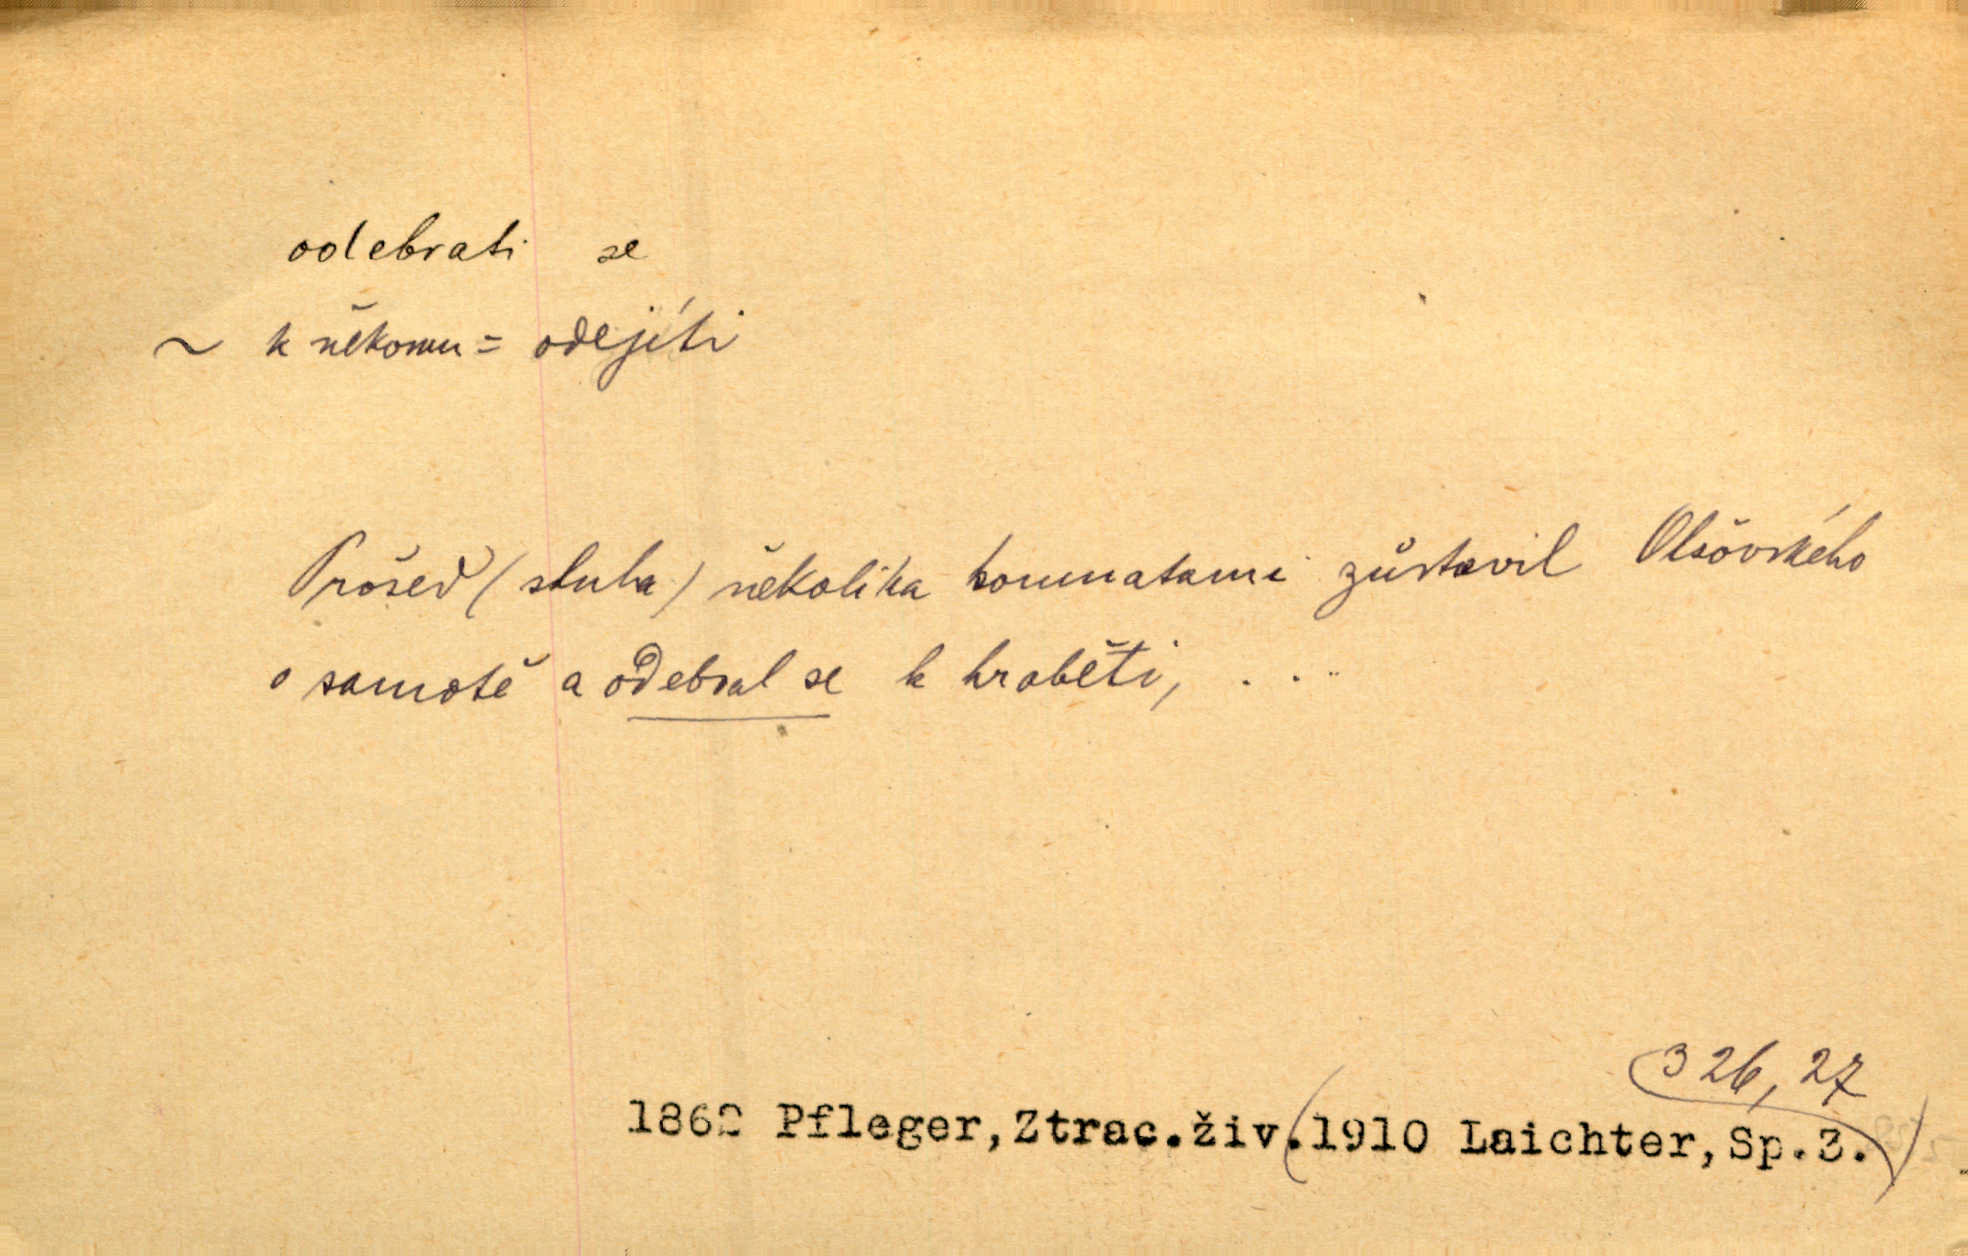 odebrati se
~ k někomu = odejíti
Prošed (sluha) několika komnatami zůstavil Olšovského
o samotě a odebral se k hraběti, . . .
326, 27
1862 Pfleger, Ztrac. živ. (1910 Laichter, Sp. 3.)